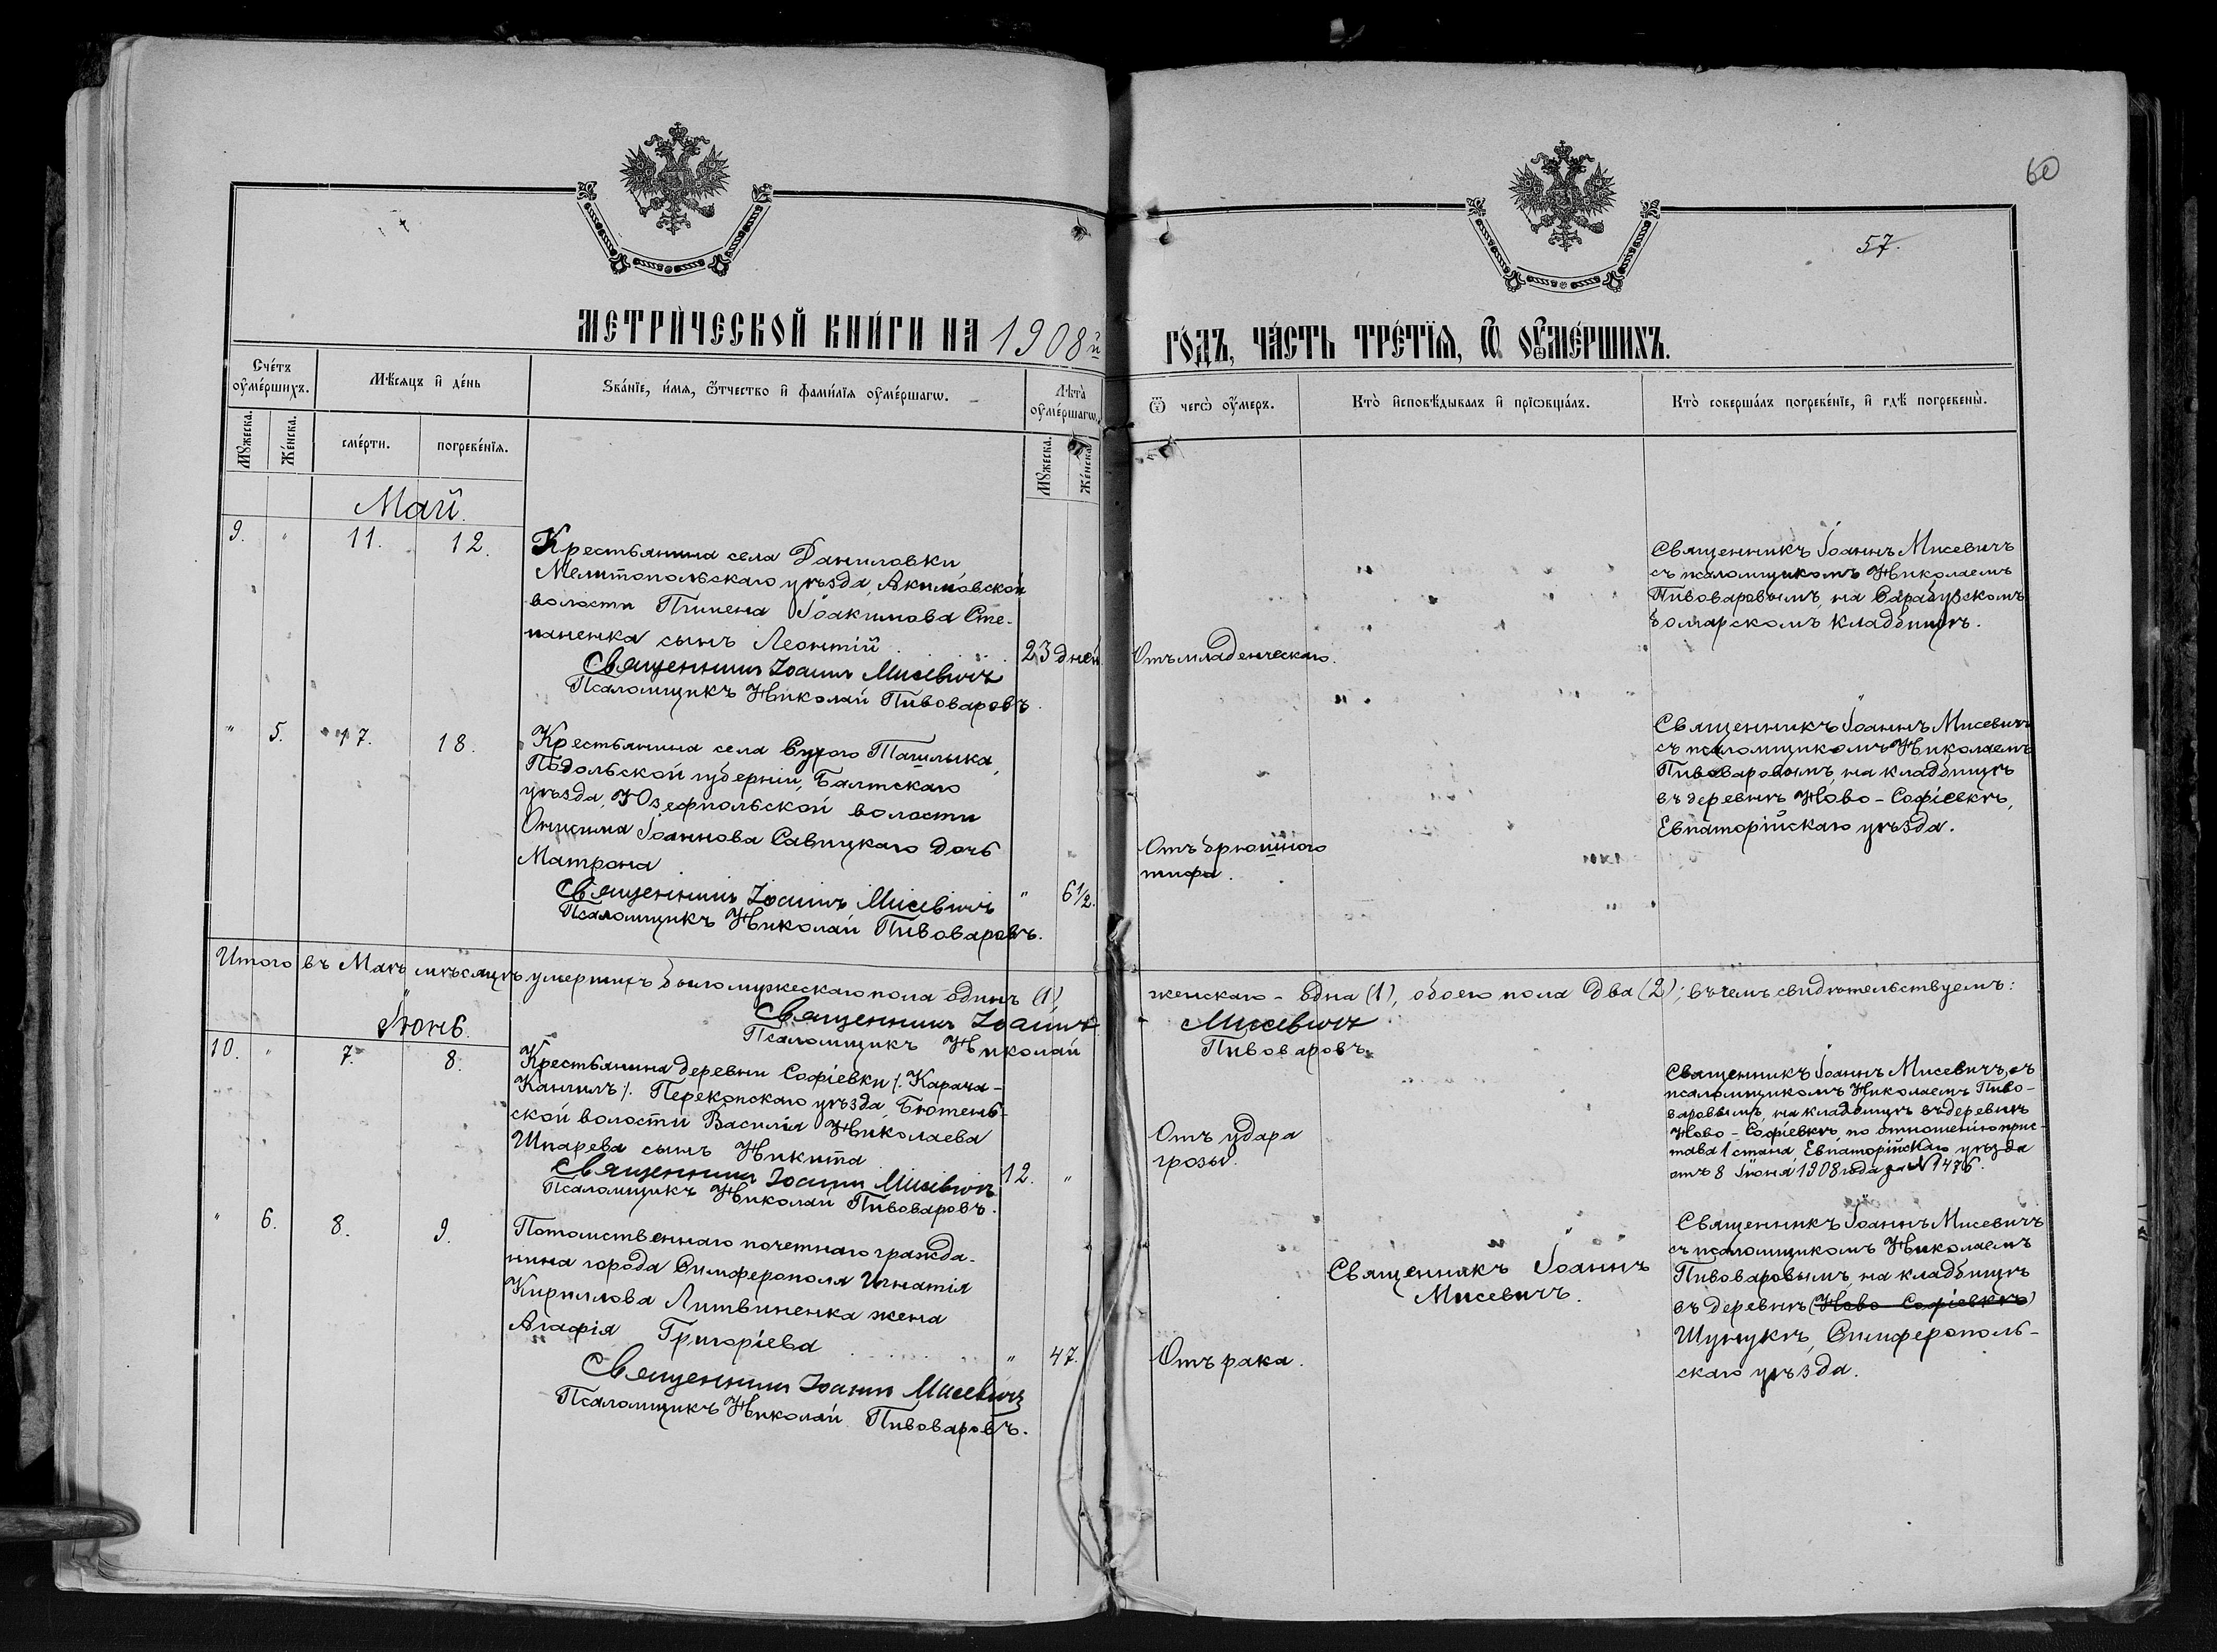 60
57.
МЕТРИ́ЧЕСКОЙ КНИ́ГИ НА 1908й
ГО́ДЪ, ЧА́СТЬ ТРЕ́ТЇѦ, Ѡ҆ ОУ҆МЕ́РШИХЪ.
Сче́тъ оу҆ме́ршихъ.
Мѣ́сѧцъ и҆ де́нь
Ѕва́нїе, и҆́мѧ, ѻ҆́тчество и҆ фами́лїѧ оу҆ме́ршагѡ.
Лѣ́та оу҆ме́ршагѡ.
Ѿ чегѡ̀ оу҆́меръ.
Кто̀ и҆сповѣ́дывалъ и҆ прїѡбща́лъ.
Кто̀ соверша́лъ погребе́нїе, и҆ гдѣ̀ погребены̀.
Мꙋ́жеска.
Же́нска.
сме́рти.
погребе́нїѧ.
Мꙋ́жеска.
Же́нска.
Май.
9. " 11. 12.
Крестьянина села Даниловки
Мелитопольскаго уѣзда, Акимовской
волости Пимена Іоакимова Сте-
паненка сынъ Леонтій
23 дней
Отъ младенческаго.
Священникъ Іоаннъ Мисевичъ
Псаломщикъ Николай Пивоваровъ.
Священникъ Іоаннъ Мисевичъ
съ псаломщикомъ Николаемъ
Пивоваровымъ, на Сарабузскомъ
болгарскомъ кладбищѣ.
" 5. 17. 18.
Крестьянина села Сухого Ташлыка,
Подольской губерніи, Балтскаго
уѣзда, Юзефпольской волости
Онисима Іоаннова Савицкаго дочь
Матрона
" 6½.
Отъ брюшного
тифа.
Священникъ Іоаннъ Мисевичъ
Псаломщикъ Николай Пивоваровъ.
Священникъ Іоаннъ Мисевичъ
съ псаломщикомъ Николаемъ
Пивоваровымъ, на кладбищѣ
въ деревнѣ Ново-Софіевкѣ,
Евпаторійскаго уѣзда.
Итого въ Маѣ мѣсяцѣ умершихъ было мужескаго пола одинъ (1)
женскаго - одна (1), обоего пола два (2); въ чемъ свидѣтельствуемъ:
Священникъ Іоаннъ Мисевичъ
Псаломщикъ Николай Пивоваровъ.
Іюнь.
10. " 7. 8.
Крестьянина деревни Софіевки /. Карача-
Кангилъ /. Перекопскаго уѣзда, Бютень-
ской волости Василія Николаева
Шпарева сынъ Никита
12. "
Отъ удара
грозы.
Священникъ Іоаннъ Мисевичъ
Псаломщикъ Николай Пивоваровъ.
Священникъ Іоаннъ Мисевичъ, съ
псаломщикомъ Николаемъ Пиво-
варовымъ, на кладбищѣ въ деревнѣ
Ново-Софіевкѣ, по отношенію прис-
тава 1 стана, Евпаторійскаго уѣзда
отъ 8 Іюня 1908 года за № 1476.
" 6. 8. 9.
Потомственнаго почетнаго гражда-
нина города Симферополя Игнатія
Кириллова Литвиненка жена
Агафія Григоріева
" 47.
Отъ рака.
Священникъ Іоаннъ Мисевичъ
Псаломщикъ Николай Пивоваровъ.
Священникъ Іоаннъ
Мисевичъ.
Священникъ Іоаннъ Мисевичъ
съ псаломщикомъ Николаемъ
Пивоваровымъ, на кладбищѣ
въ деревнѣ (Ново-Софіевкѣ)
Шунукѣ, Симферополь-
скаго уѣзда.